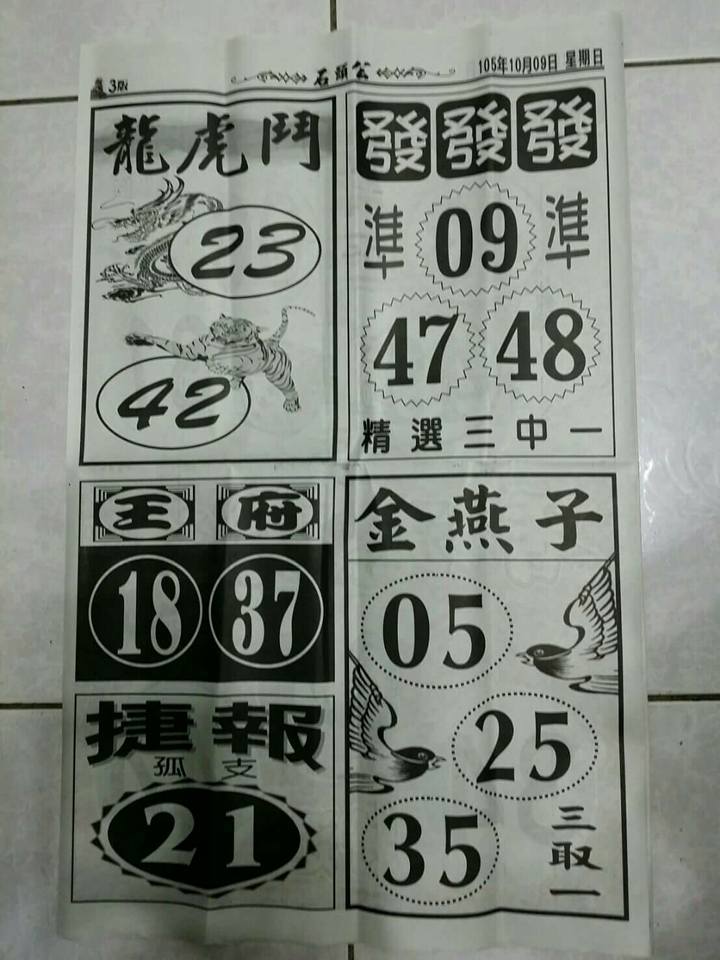 3版
石頭公
105年10月09日 星期日
龍虎鬥
23
42
發發發
準 09 準
47 48
精選三中一
王府
18 37
捷報
孤支
21
金燕子
05
25
35
三取一